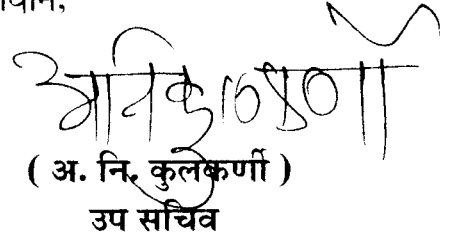 अ नि कुलकर्णी
( अ. नि. कुलकर्णी )
उप सचिव